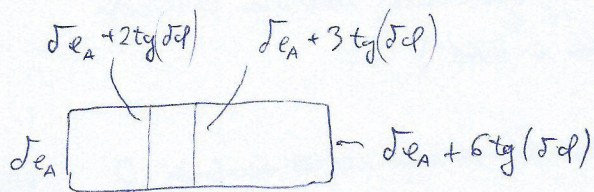 δe_A + 2 tg(δφ) δe_A + 3 tg(δφ)
δe_A δe_A + 6 tg(δφ)